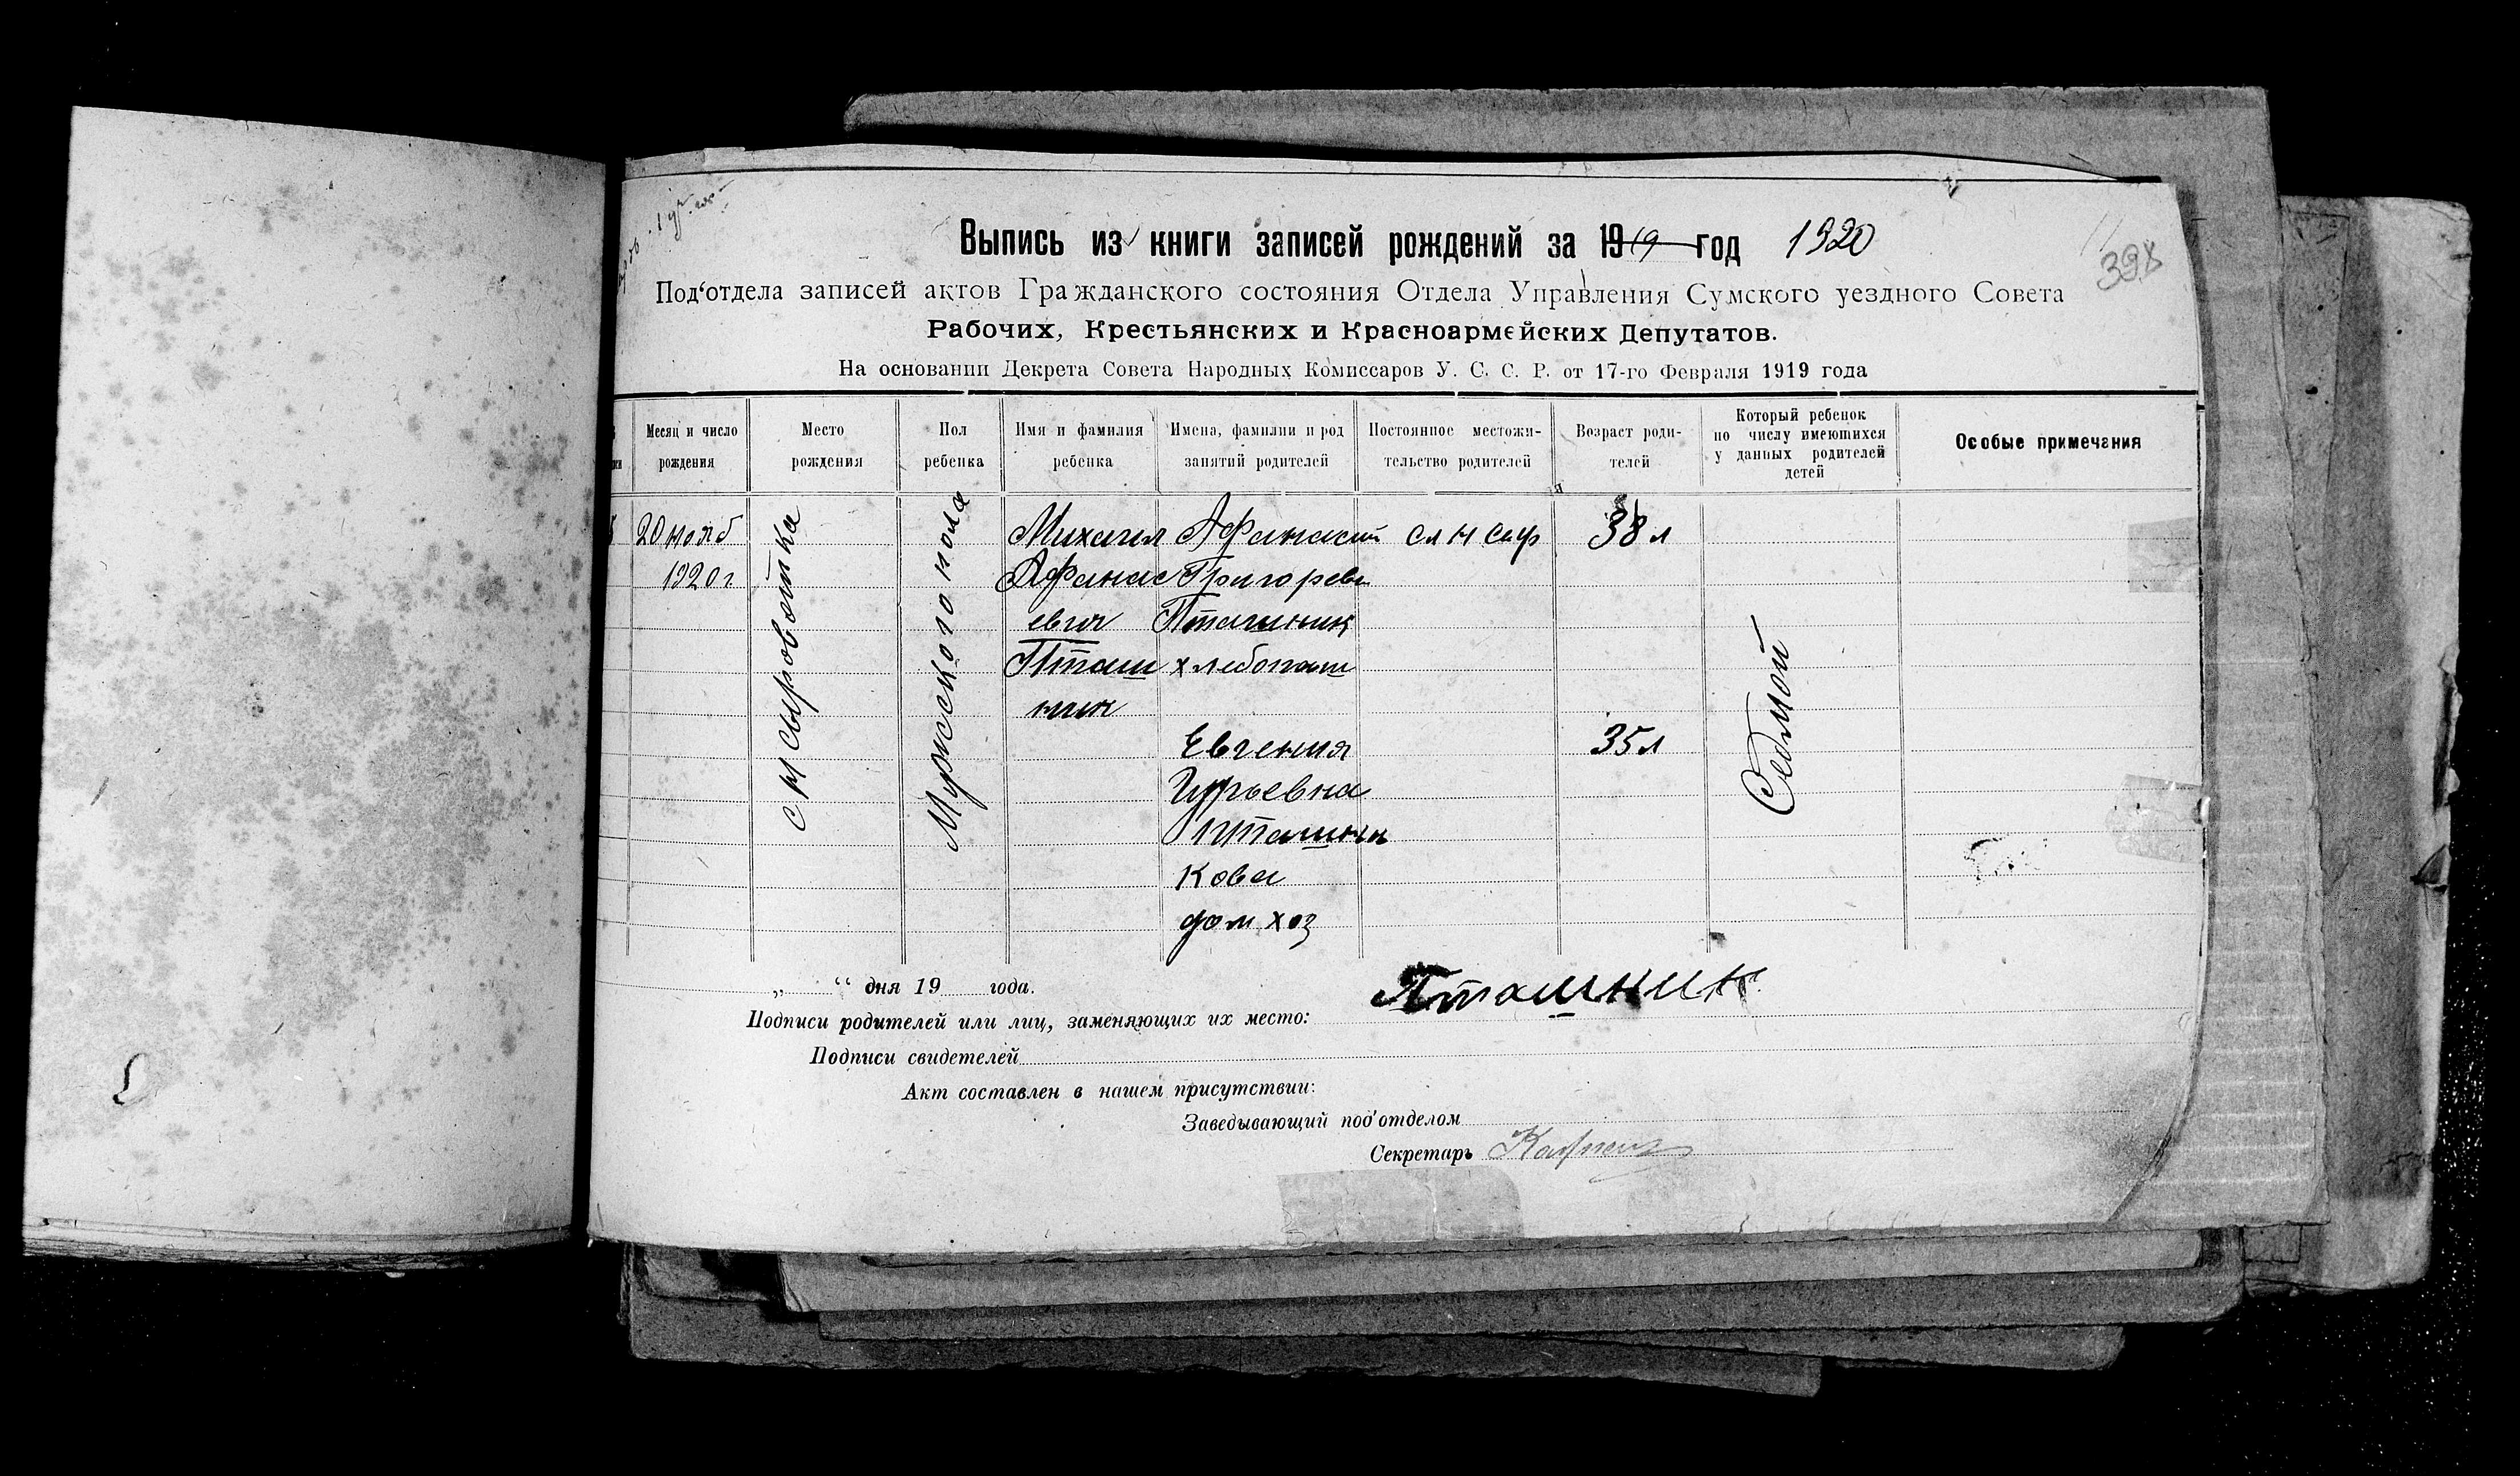 Выпись из книги записей рождений за 1919 год 1920
398
Под‘отдела записей актов Гражданского состояния Отдела Управления Сумского уездного Совета
Рабочих, Крестьянских и Красноармейских Депутатов.
На основании Декрета Совета Народных Комиссаров У. С. С. Р. от 17-го Февраля 1919 года
Месяц и число
рождения
Место
рождения
Пол
ребенка
Имя и фамилия
ребенка
Имена, фамилии и род
занятий родителей
Постоянное местожи-
тельство родителей
Возраст роди-
телей
Который ребенок
по числу имеющихся
у данных родителей
детей
Особые примечания
20 нояб
1920 г.
с Н Сыроватка
Мужского пола
Михаил
Афанас
евич
Пташ
ник
Афанасий
Григорев
Пташник
хлебопаш
Евгения
Гурьевна
Пташни
кова
дом хоз
сл Н Сыр
38 л
35 л
Седмой
„ “ дня 19 года.
Подписи родителей или лиц, заменяющих их место: Пташник
Подписи свидетелей
Акт составлен в нашем присутствии:
Заведывающий под‘отделом
Секретарь